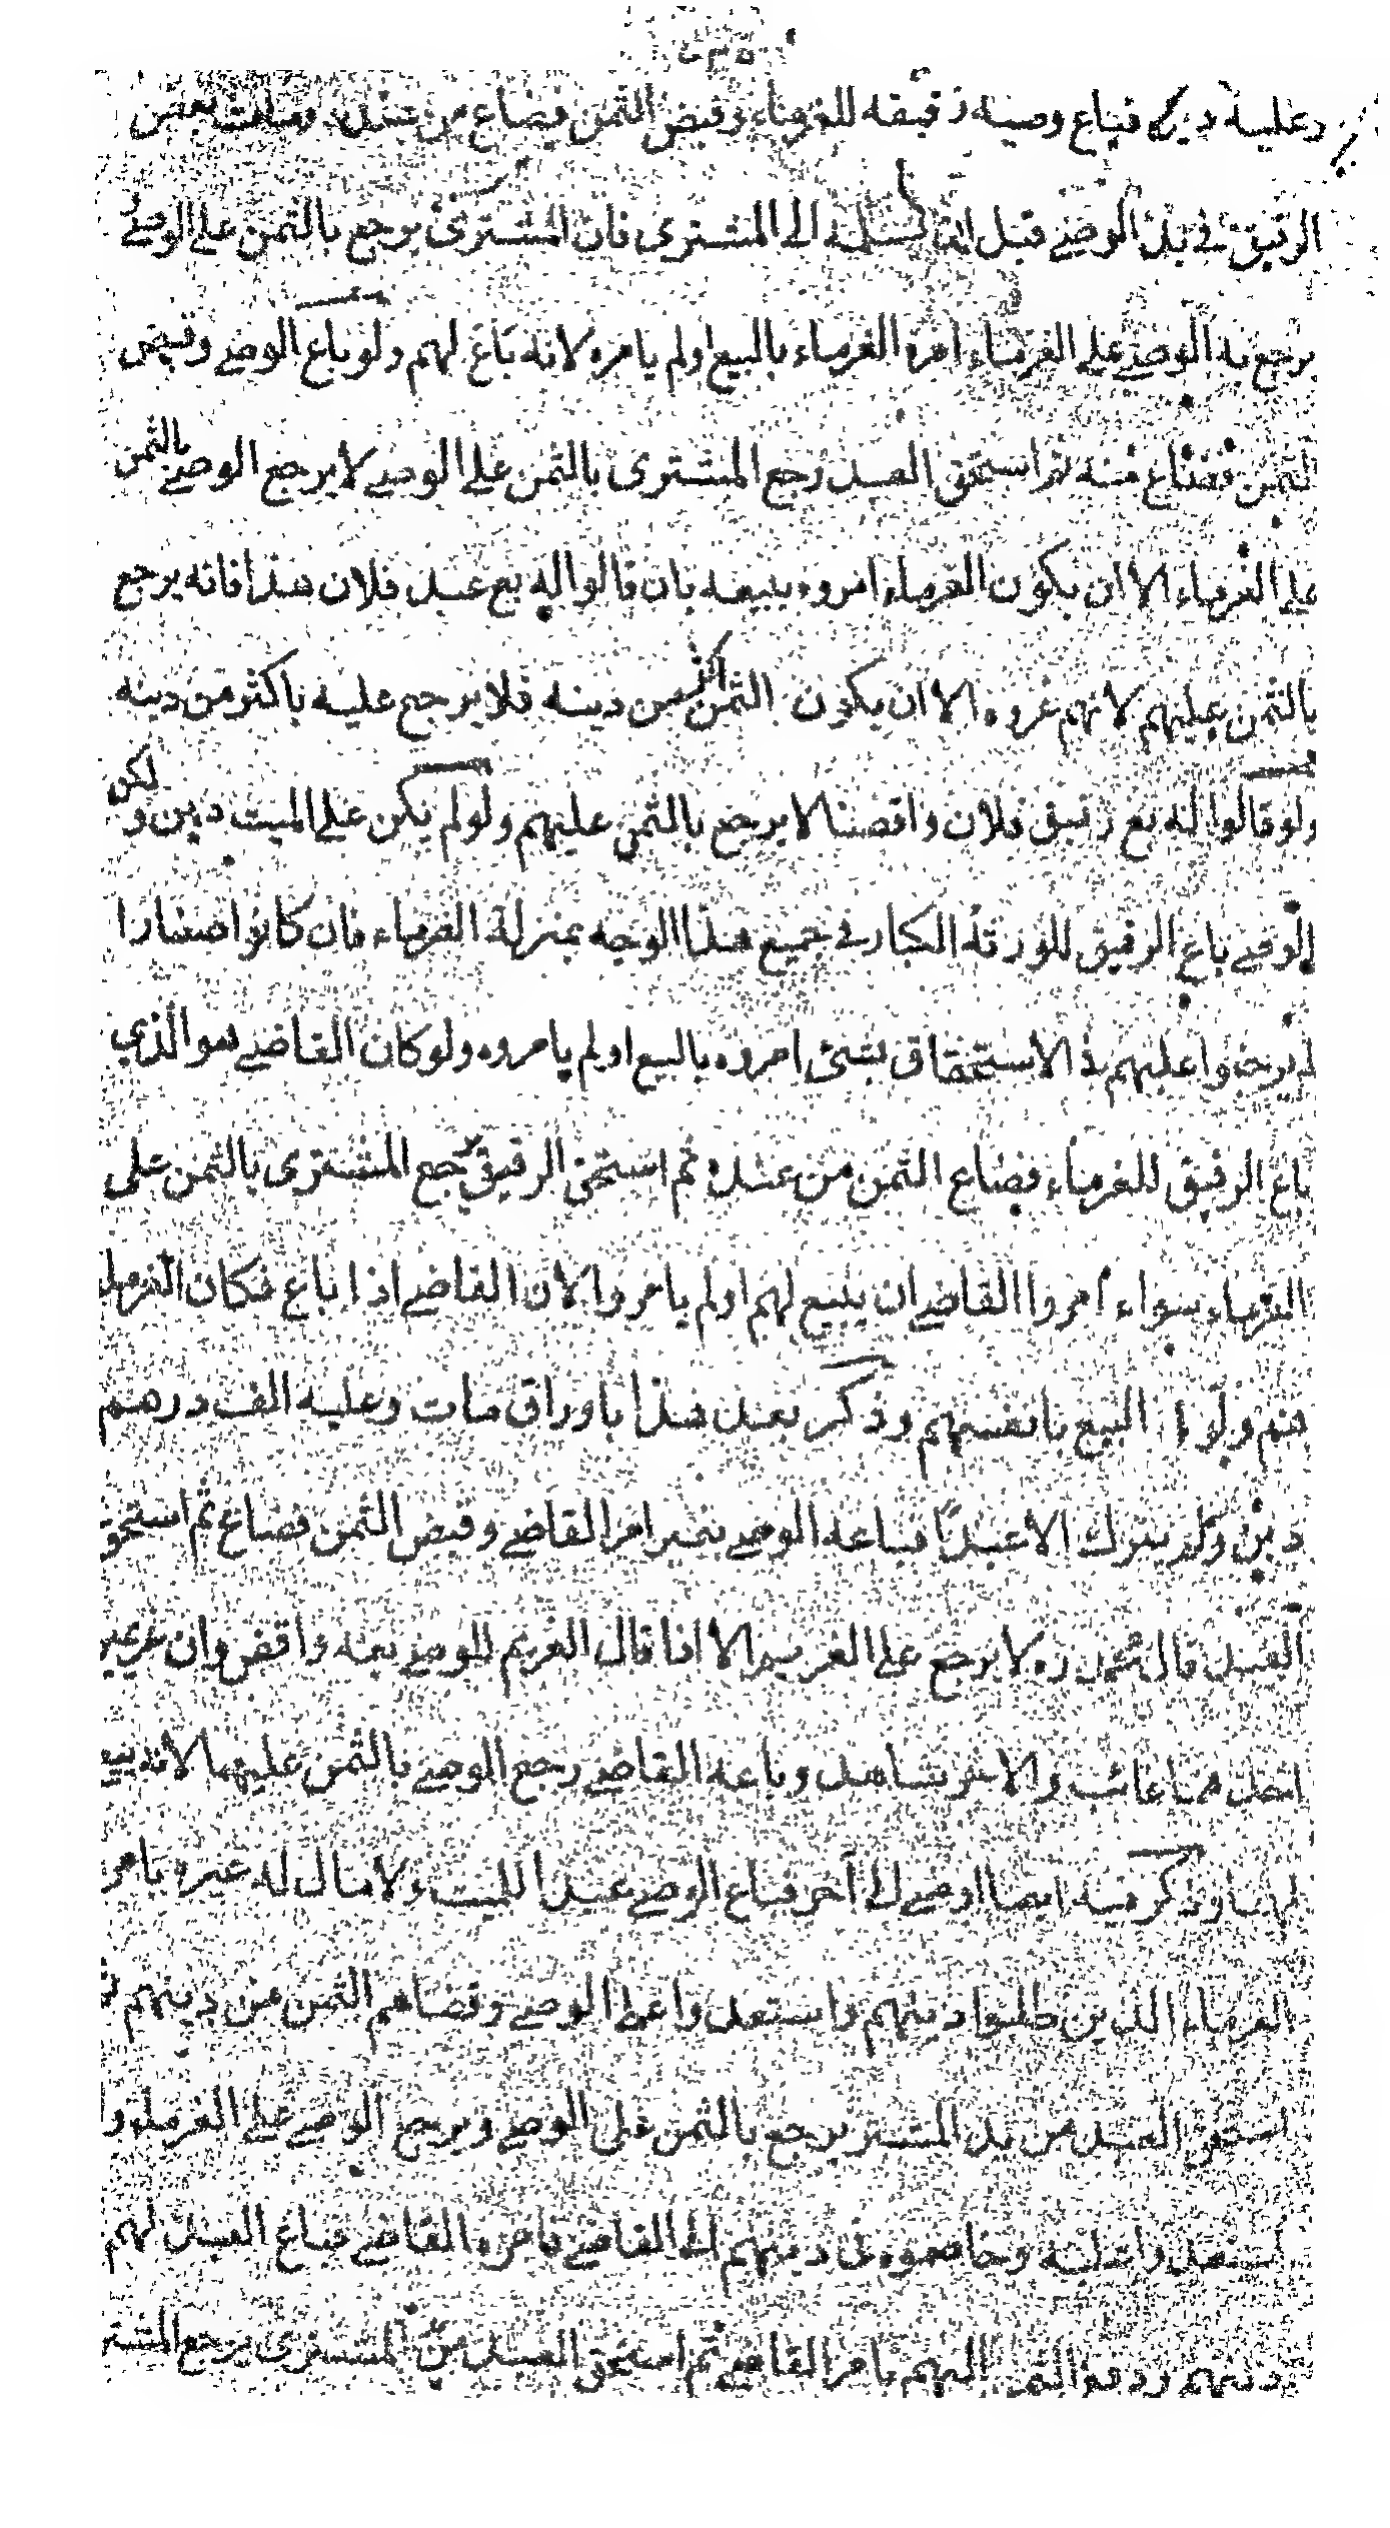 وعليه دين فباع وصيه رقيقه للغرماء وقبض الثمن فضاع من عنده ومات بعض
الرقيق في يد الوصي قبل ان يسلمه الى المشتري فان المشتري يرجع بالثمن على الوصي
يرجع به الوصي على الغرماء امره الغرماء بالبيع اولم يامره لانه باع لهم ولو باع الوصي وقبض
الثمن فضاع منه ثم استحق العبد رجع المشتري بالثمن على الوصي لا يرجع الوصي بالثمن
على الغرماء الا ان يكون الغرماء امروه ببيعه بان قالوا له بع عبد فلان هذا فانه يرجع
بالثمن عليهم لانهم غروه الا ان يكون الثمن اكثر من دينه فلا يرجع عليه باكثر من دينه
ولو قالوا له بع رقيق فلان واقضنا لا يرجع بالثمن عليهم ولو لم يكن على الميت دين ولكن
الوصي باع الرقيق للورثة الكبار في جميع هذا الوجه بمنزلة الغرماء فان كانوا صغارا
لم يرجعوا عليهم في الاستحقاق بشئ امروه بالبيع اولم يامروه ولو كان القاضي هو الذي
باع الرقيق للغرماء فضاع الثمن من عنده ثم استحق الرقيق رجع المشتري بالثمن على
الغرماء سواء امروا القاضي ان يبيع لهم اولم يامروا لان القاضي اذا باع فكان الغرماء
هم ولوا البيع بانفسهم وذكر بعد هذا باوراق مات وعليه الف درهم
دين ولم يترك الا عبدا فباعه الوصي بغير امر القاضي وقبض الثمن فضاع ثم استحق
العبد قال محمد ره لا يرجع على الغريم الا اذا قال الغريم للوصي بعه واقض وان غريمين
احدهما غائب والاخر شاهد وباعه القاضي رجع الوصي بالثمن عليهما لانه يبيع
لهما وذكر فيه ايضا اوصى الى آخر فباع الوصي عبد الميت ولا مال له غيره بامر
الغرماء الذين طلبوا دينهم واستعدوا على الوصي وقضاهم الثمن من دينهم ثم
استحق العبد من يد المشتري يرجع بالثمن على الوصي ويرجع الوصي على الغرماء و
وخاصموه في دينهم الى القاضي فامره القاضي فباع العبد لهم
دينهم ودفع الثمن اليهم بامر القاضي ثم استحق العبد من المشتري يرجع المشتر